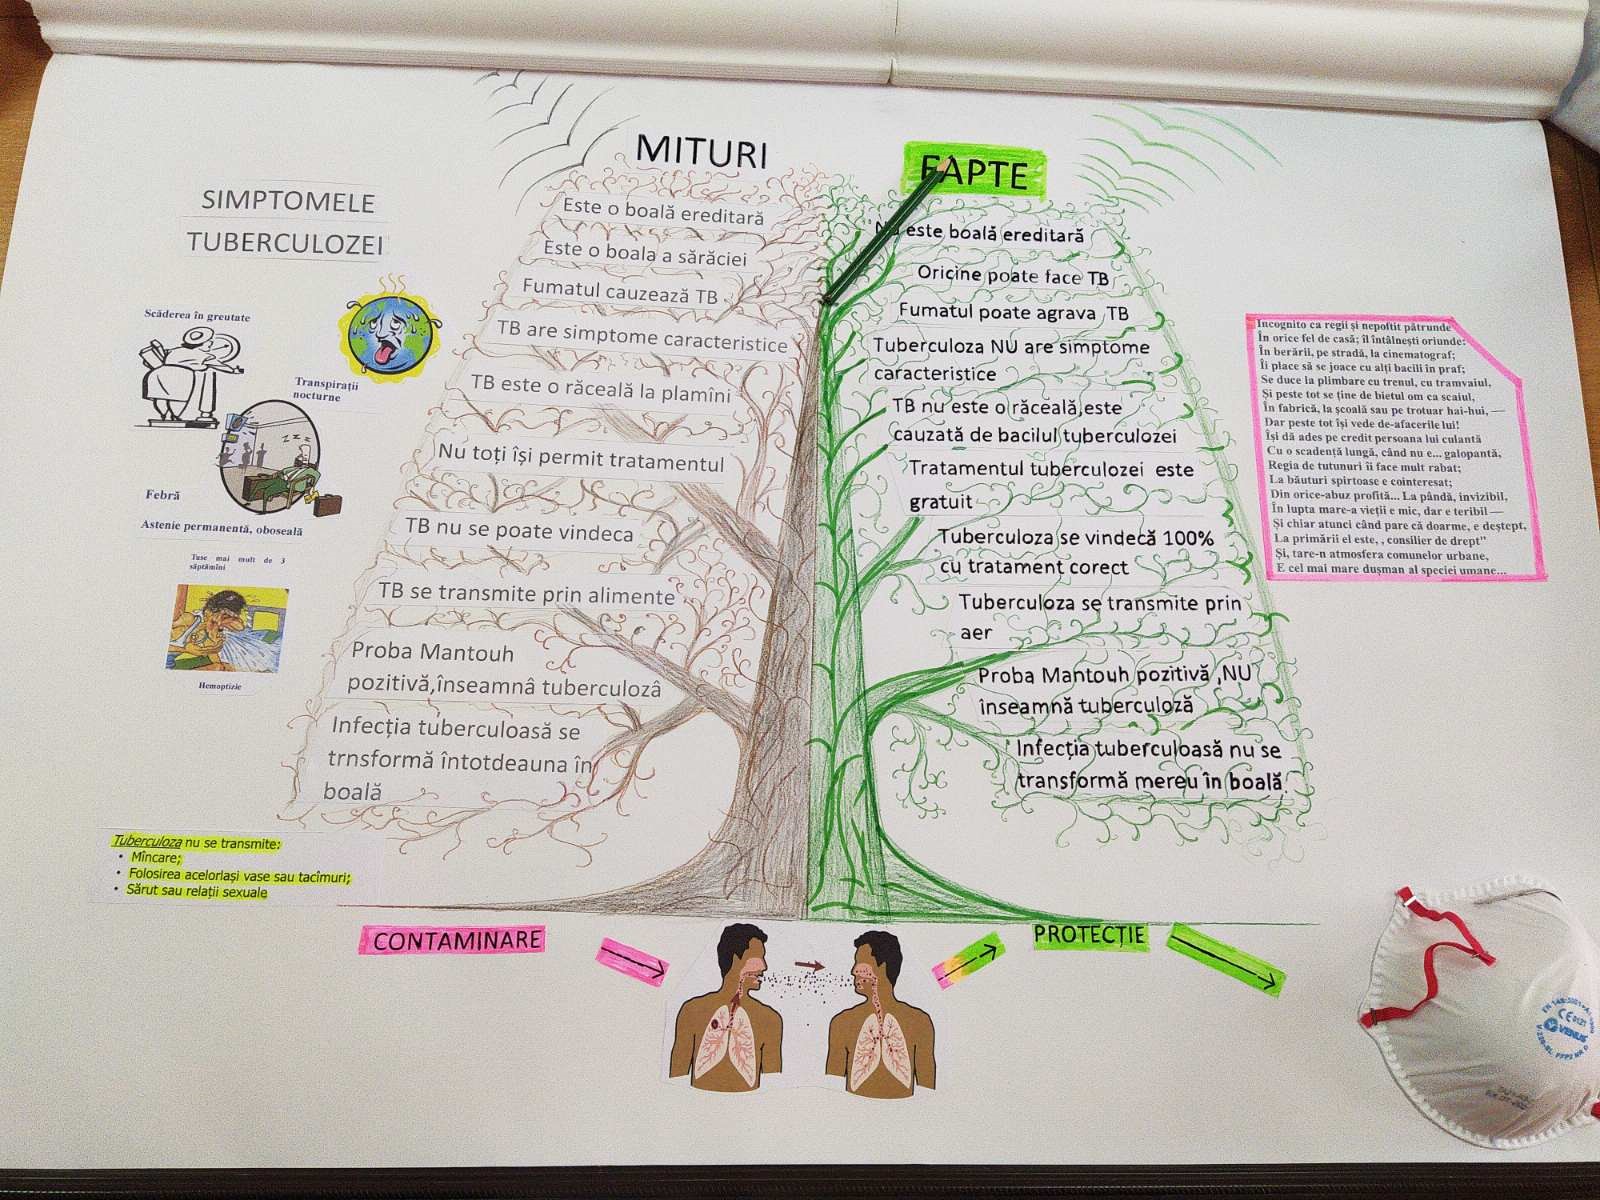 MITURI
FAPTE
SIMPTOMELE
TUBERCULOZEI
Scăderea în greutate
Transpirații
nocturne
zzz
Febră
Astenie permanentă, oboseală
Tuse mai mult de 3
săptămîni
Hemoptizie
Este o boală ereditară
Este o boala a sărăciei
Fumatul cauzează TB
TB are simptome caracteristice
TB este o răceală la plamîni
Nu toți își permit tratamentul
TB nu se poate vindeca
TB se transmite prin alimente
Proba Mantouh
pozitivă,înseamnâ tuberculozâ
Infecția tuberculoasă se
trnsformă întotdeauna în
boală
Nu este boală ereditară
Oricine poate face TB
Fumatul poate agrava TB
Tuberculoza NU are simptome
caracteristice
TB nu este o răceală,este
cauzată de bacilul tuberculozei
Tratamentul tuberculozei este
gratuit
Tuberculoza se vindecă 100%
cu tratament corect
Tuberculoza se transmite prin
aer
Proba Mantouh pozitivă ,NU
înseamnă tuberculoză
Infecția tuberculoasă nu se
transformă mereu în boală
Incognito ca regii și nepoftit pătrunde
În orice fel de casă; îl întâlnești oriunde:
În berării, pe stradă, la cinematograf;
Îi place să se joace cu alți bacili în praf;
Se duce la plimbare cu trenul, cu tramvaiul,
Și peste tot se ține de bietul om ca scaiul,
În fabrică, la școală sau pe trotuar hai-hui, —
Dar peste tot își vede de-afacerile lui!
Își dă ades pe credit persoana lui culantă
Cu o scadență lungă, când nu e... galopantă,
Regia de tutunuri îi face mult rabat;
La băuturi spirtoase e cointeresat;
Din orice-abuz profită... La pândă, invizibil,
În lupta mare-a vieții e mic, dar e teribil —
Și chiar atunci când pare că doarme, e deștept,
La primării el este, , consilier de drept"
Și, tare-n atmosfera comunelor urbane,
E cel mai mare dușman al speciei umane...
Tuberculoza nu se transmite:
• Mîncare;
• Folosirea acelorlași vase sau tacîmuri;
• Sărut sau relații sexuale
CONTAMINARE
PROTECȚIE
CE 0121
VENUS